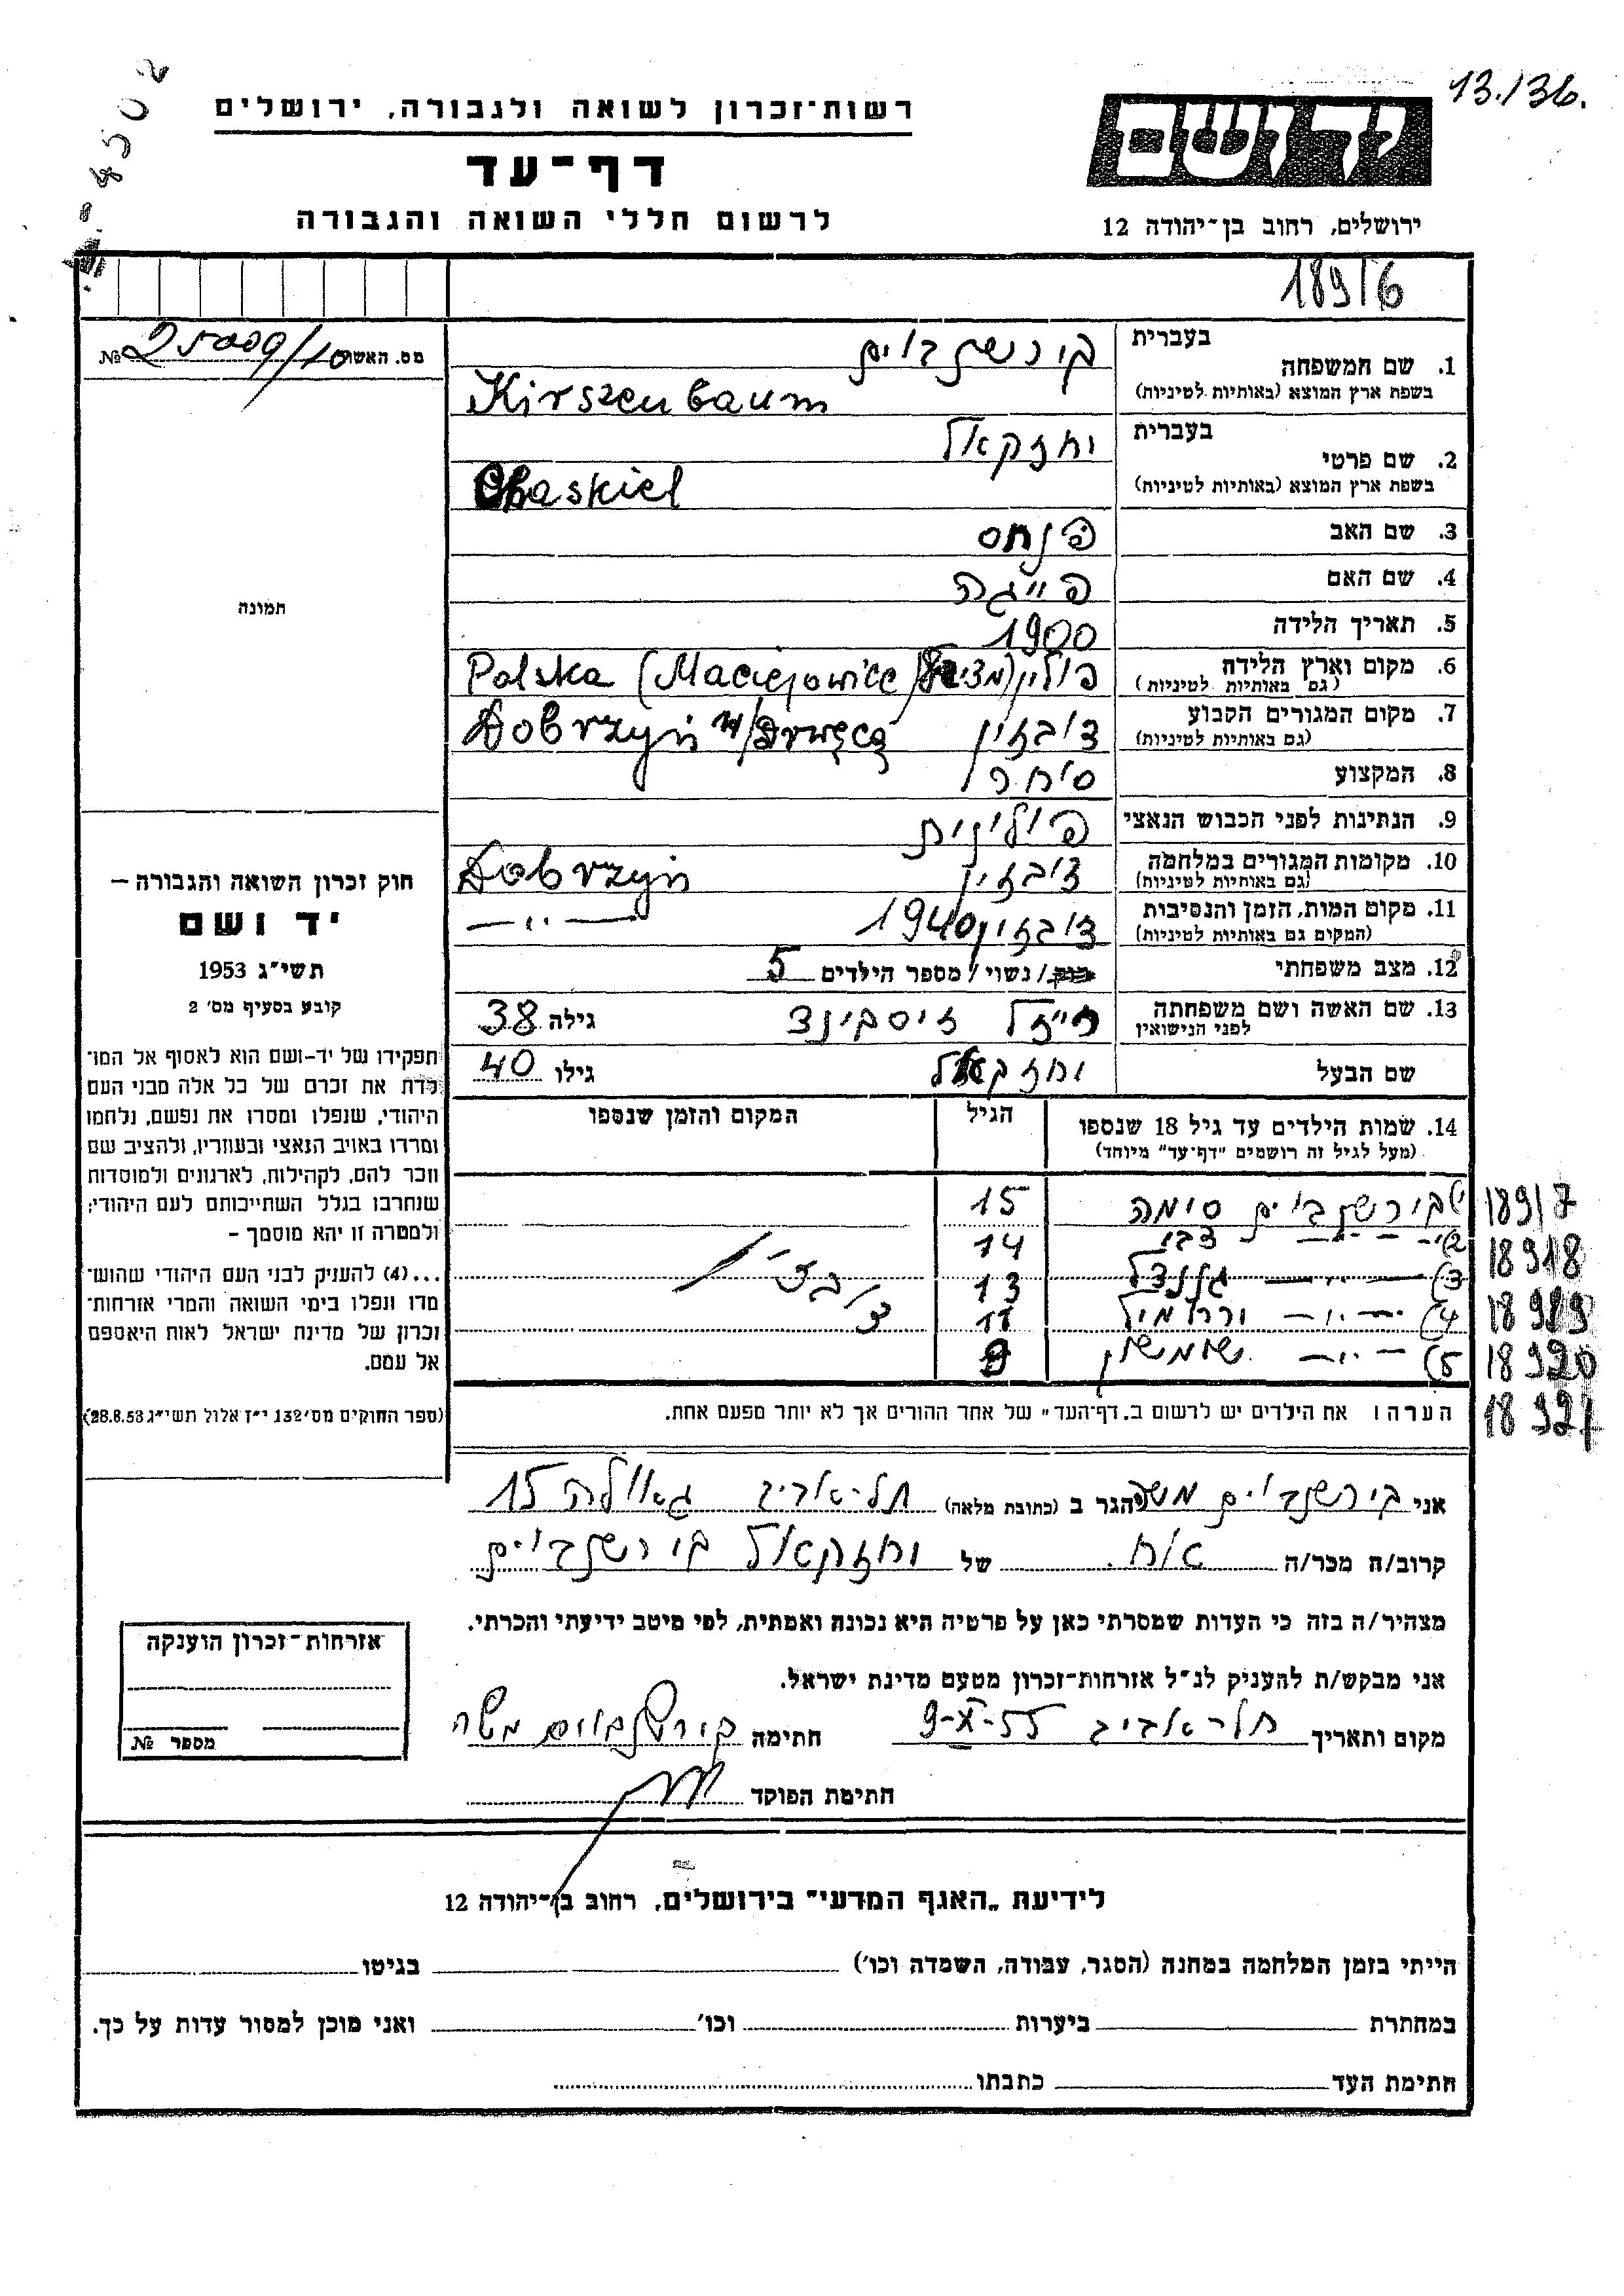 13./36.
רשות־זכרון לשואה ולגבורה, ירושלים
ידושם
דף־עד
לרשום חללי השואה והגבורה
ירושלים, רחוב בן־יהודה 12
189/6
מס. האשה № 25009/10
1. שם המשפחה בעברית קירשנבוים
בשפת ארץ המוצא (באותיות לטיניות) Kirszenbaum
2. שם פרטי בעברית יחזקאל
בשפת ארץ המוצא (באותיות לטיניות) Chaskiel
3. שם האב פנחס
4. שם האם פייגה
תמונה
5. תאריך הלידה 1900
6. מקום וארץ הלידה פולין
(גם באותיות לטיניות) Polska (Maciejowice)
7. מקום המגורים הקבוע דובזין
(גם באותיות לטיניות) Dobrzyń n/Drwęcą
8. המקצוע סוחר
9. הנתינות לפני הכבוש הנאצי פולונית
10. מקומות המגורים במלחמה דובזין
(גם באותיות לטיניות) Dobrzyń
11. מקום המות, הזמן והנסיבות דובזין 1940
(המקום גם באותיות לטיניות) — " —
12. מצב משפחתי רוק/ נשוי/ מספר הילדים 5
13. שם האשה ושם משפחתה זיסבינד גילה 38
לפני הנישואין
שם הבעל יחזקאל גילו 40
14. שמות הילדים עד גיל 18 שנספו הגיל המקום והזמן שנספו
(מעל לגיל זה רושמים "דף־עד" מיוחד)
1) קירשנבוים סימה 15 189/7
2) — " — צבי 14 18918
3) — " — 13 18919
4) — " — 11 18920
5) — " — שמשון 9 18921
דובזין
הערה: את הילדים יש לרשום ב„דף־העד" של אחד ההורים אך לא יותר מפעם אחת.
חוק זכרון השואה והגבורה —
יד ושם
תשי״ג 1953
קובע בסעיף מס׳ 2
תפקידו של יד-ושם הוא לאסוף אל המו־
לדת את זכרם של כל אלה מבני העם
היהודי, שנפלו ומסרו את נפשם, נלחמו
ומרדו באויב הנאצי ובעוזריו, ולהציב שם
וזכר להם, לקהילות, לארגונים ולמוסדות
שנחרבו בגלל השתייכותם לעם היהודי;
ולמטרה זו יהא מוסמך –
...(4) להעניק לבני העם היהודי שהוש־
מדו ונפלו בימי השואה והמרי אזרחות־
זכרון של מדינת ישראל לאות היאספם
אל עמם.
(ספר החוקים מס׳ 132 י״ז אלול תשי״ג 28.8.53)
אני קירשנבוים משה הגר ב (כתובת מלאה) תל-אביב גאולה 15
קרוב/ה מכר/ה אח של יחזקאל קירשנבוים
מצהיר/ה בזה כי העדות שמסרתי כאן על פרטיה היא נכונה ואמתית, לפי מיטב ידיעתי והכרתי.
אני מבקש/ת להעניק לנ״ל אזרחות־זכרון מטעם מדינת ישראל.
מקום ותאריך תל-אביב 9-X-55 חתימה קירשנבוים משה
חתימת הפוקד
אזרחות־זכרון הוענקה
מספר №
לידיעת „האגף המדעי" בירושלים, רחוב בן־יהודה 12
הייתי בזמן המלחמה במחנה (הסגר, עבודה, השמדה וכו׳) בגיטו
במחתרת ביערות וכו׳ ואני מוכן למסור עדות על כך.
חתימת העד כתבתו